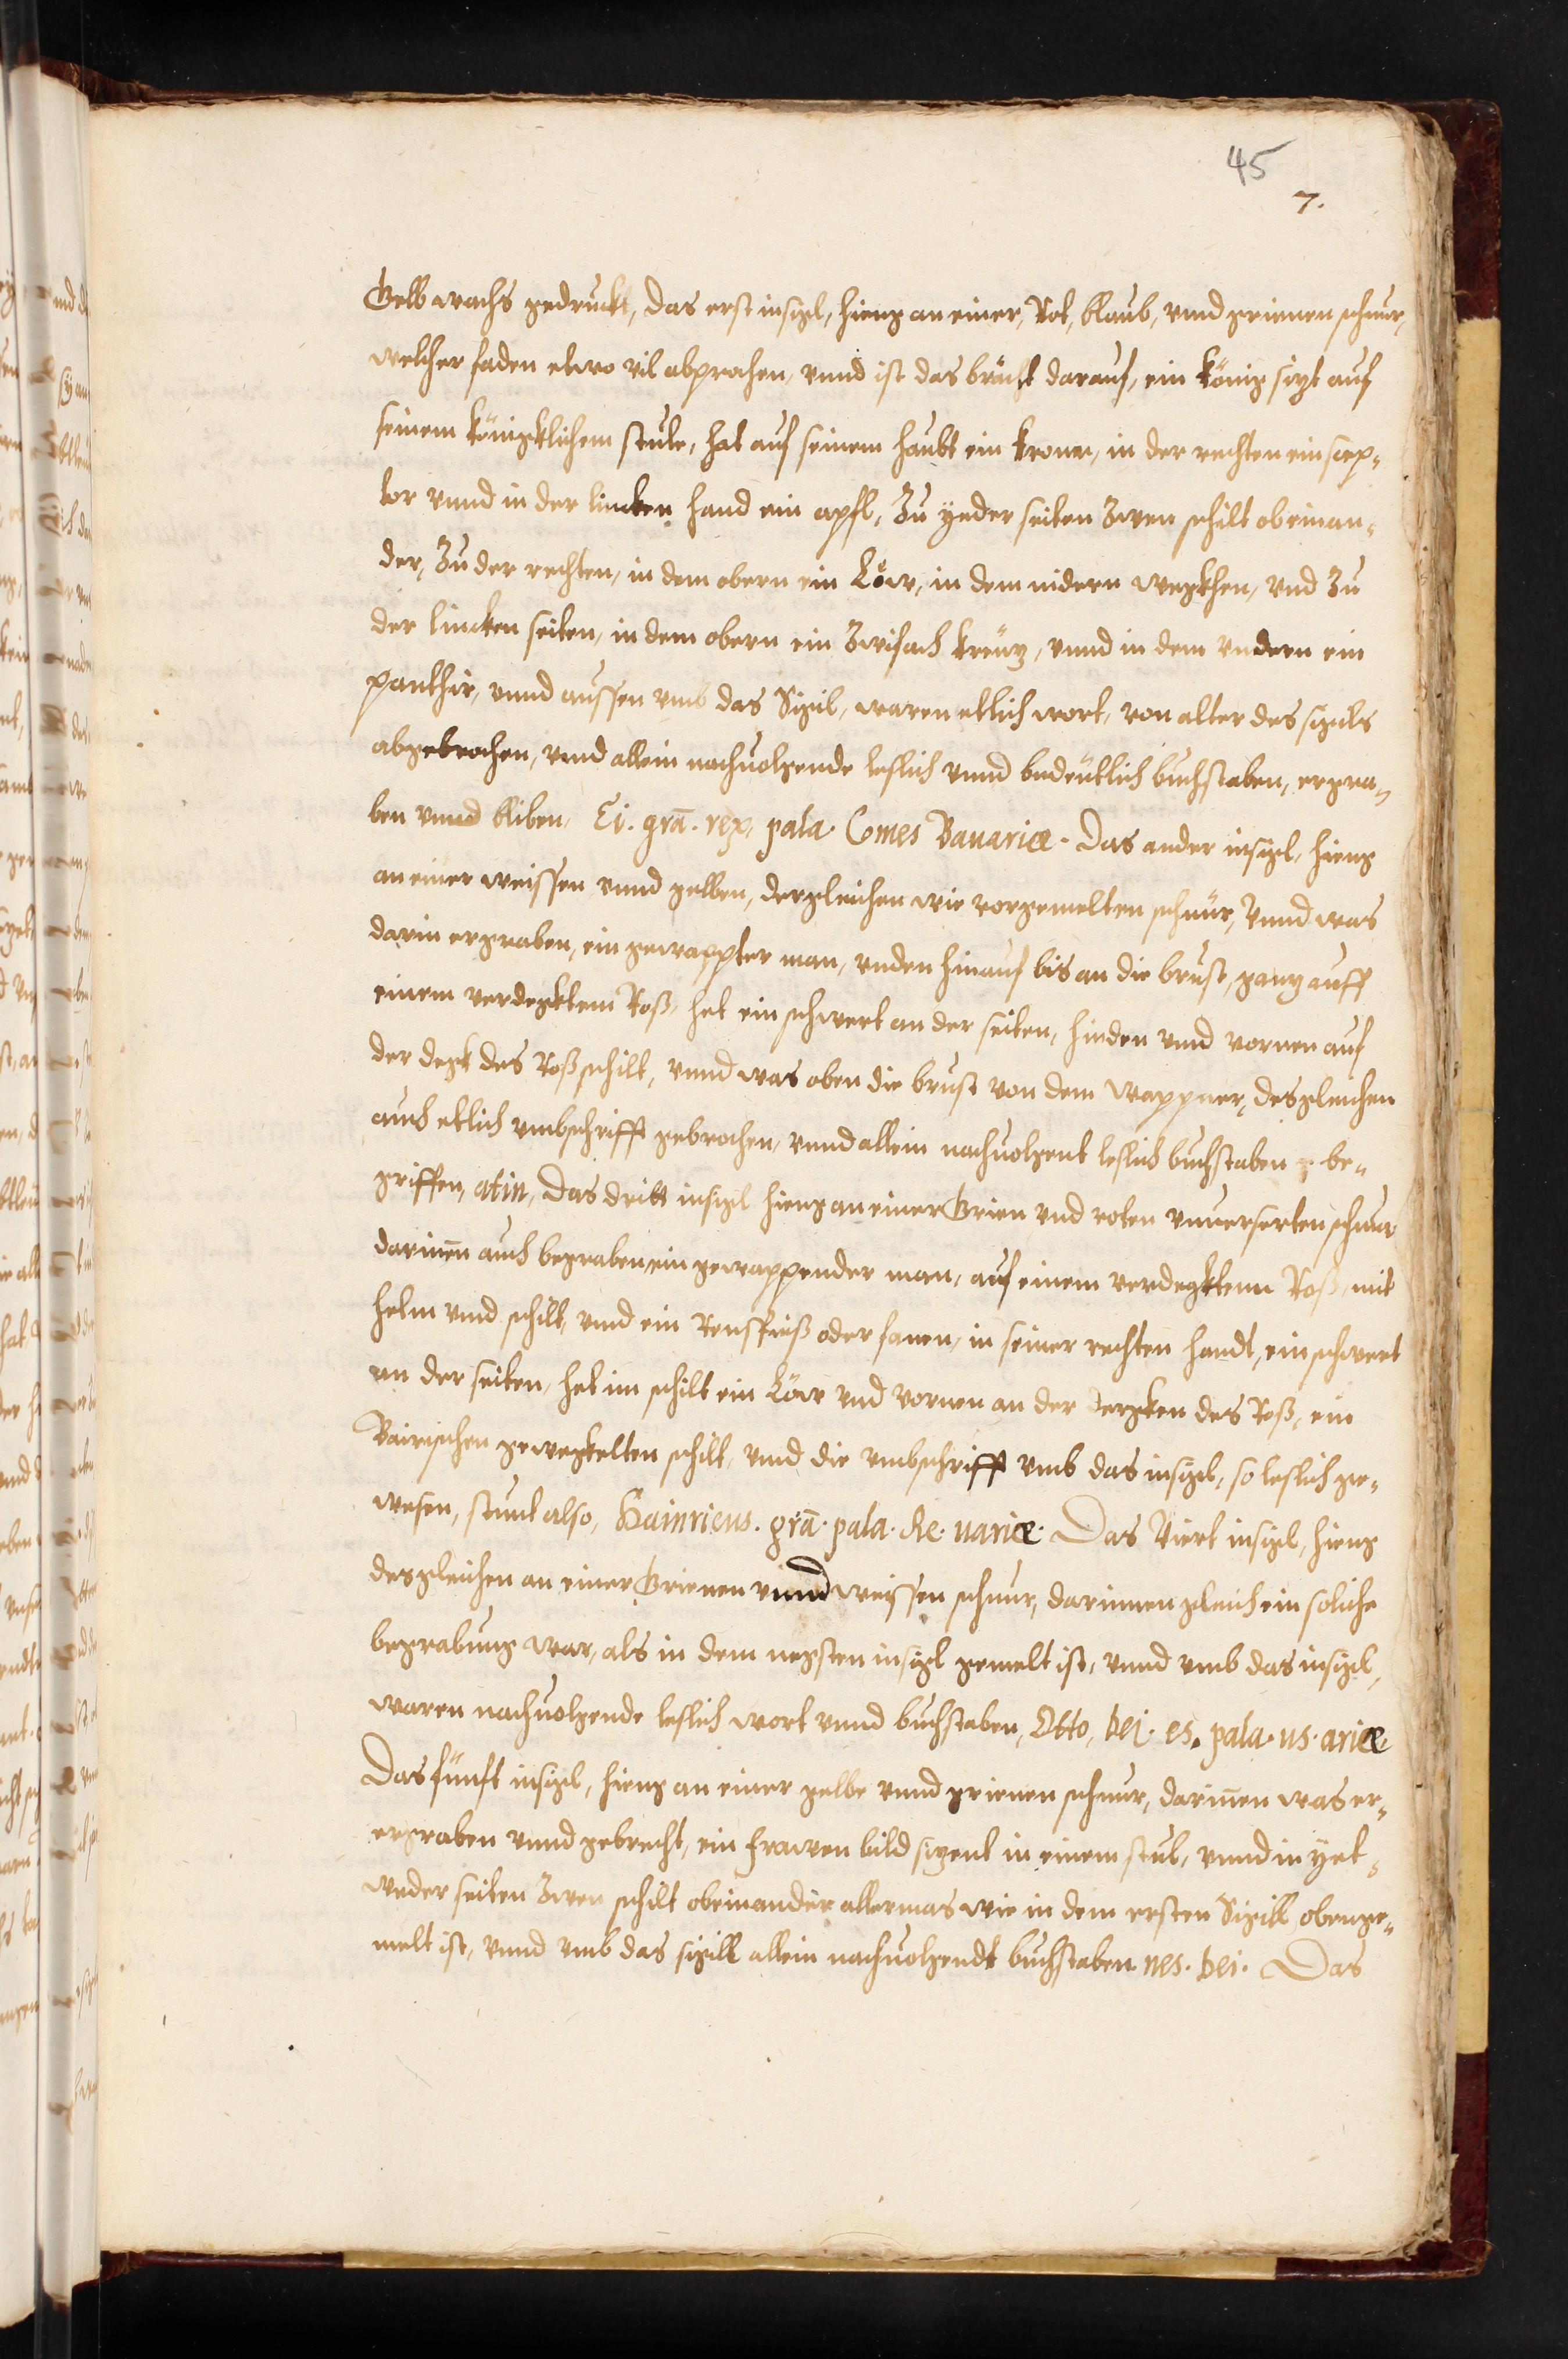 45
7.
Gelb wachs gedruckt, das erst insigl, hieng an einer, Rot, blaub, vnnd grienen schnur,
welcher faden etwo vil abprochen, vnnd ist das brächt darauf, ein König sizt auf
seinem königklichem stule, hat auf seinem haubt ein kronn, in der rechten ein scep¬
tor vnnd in der lincken hand ein apfl, Zu yeder seiten Zwen schilt obeinan¬
der, Zu der rechten, in dem obern ein Löw, in dem nidern wegkhen, vnd Zu
der lincken seiten, in dem obern ein Zwifach kreuz, vnnd in dem vndern ein
panthir, vnnd aussen vmb das Sigil, waren etlich wort, von alter des sigils
abgebrochen, vnnd allein nachuolgende leslich vnnd bedeutlich buchstaben, ergra¬
ben vnnd bliben, Ei. grā. rex, pala. Comes Bauariæ. Das ander insigl, hieng
an einer weissen vnnd gelben, dergleichen wie vorgemelten schnur, Vnnd was
darin ergraben, ein gewappter man, vnden hinauf bis an die brust, ganz auff
einem verdegktem Roß, het ein schwert an der seiten, hinden vnnd vornen auf
der degk des Roß schilt, vnnd was oben die brust von dem wappner, desgleichen
auch etlich vmbschrifft gebrochen, vnnd allein nachuolgent leslich buchstaben be¬
griffen, atin, Das dritt insigl hieng an einer Grien vnd roten vnuerserten schnur
darinen auch begraben ein gewappender man, auf einem verdegktem Roß, mit
helm vnnd schilt, vnnd ein Renspieß oder fanen, in seiner rechten handt, ein schwert
an der seiten, het im schilt ein Löw vnd vornen an der degken des Roß, ein
Bairischen gewegkelten schilt, vnnd die vmbschrifft vmb das insigl, so leslich ge¬
wesen, stunt also, Hainricus. grā. pala. Re. uariæ. Das Viert insigl, hieng
desgleichen an einer Grienen vnnd weissen schnur, darinnen gleich ein soliche
begrabung war, als in dem negsten insigl gemelt ist, vnnd vmb das insigl,
waren nachuolgende leslich wort vnnd buchstaben, Otto, dei. es. pala. us. ariæ
Das fünft insigl, hieng an einer gelbe vnnd grienen schnur, darinen was er¬
ergraben vnnd gebrecht, ein frawen bild sizent in einem stul, vnnd in yet¬
weder seiten Zwen schilt obeinander allermas wie in dem ersten Sigill obenge¬
melt ist, vnnd vmb das sigill allein nachuolgendt buchstaben nes. dei. Das